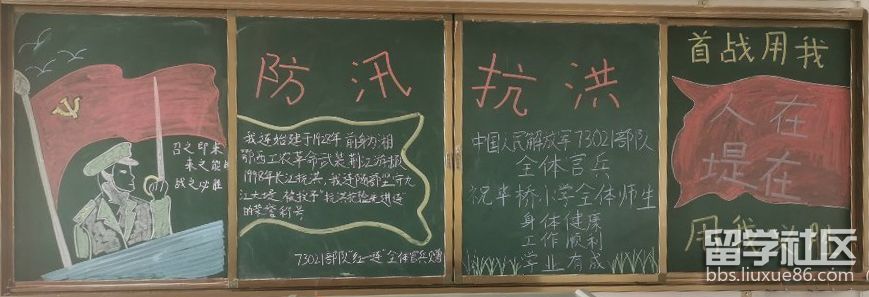 召之即来
来之能战
战之必胜
防汛
我连始建于1928年 前身为湘
鄂西工农革命武装荆江游击队
1998年长江抗洪,我连防部坚守九
江大堤 被授予"抗洪抢险先进连
的荣誉称号
73021部队"红一连"全体官兵赠
抗洪
中国人民解放军73021部队
全体官兵
祝华桥小学全体师生
身体健康
工作顺利
学业有成
首战用我
人在
堤在
用我
留学社区
bbs.liuxue86.com